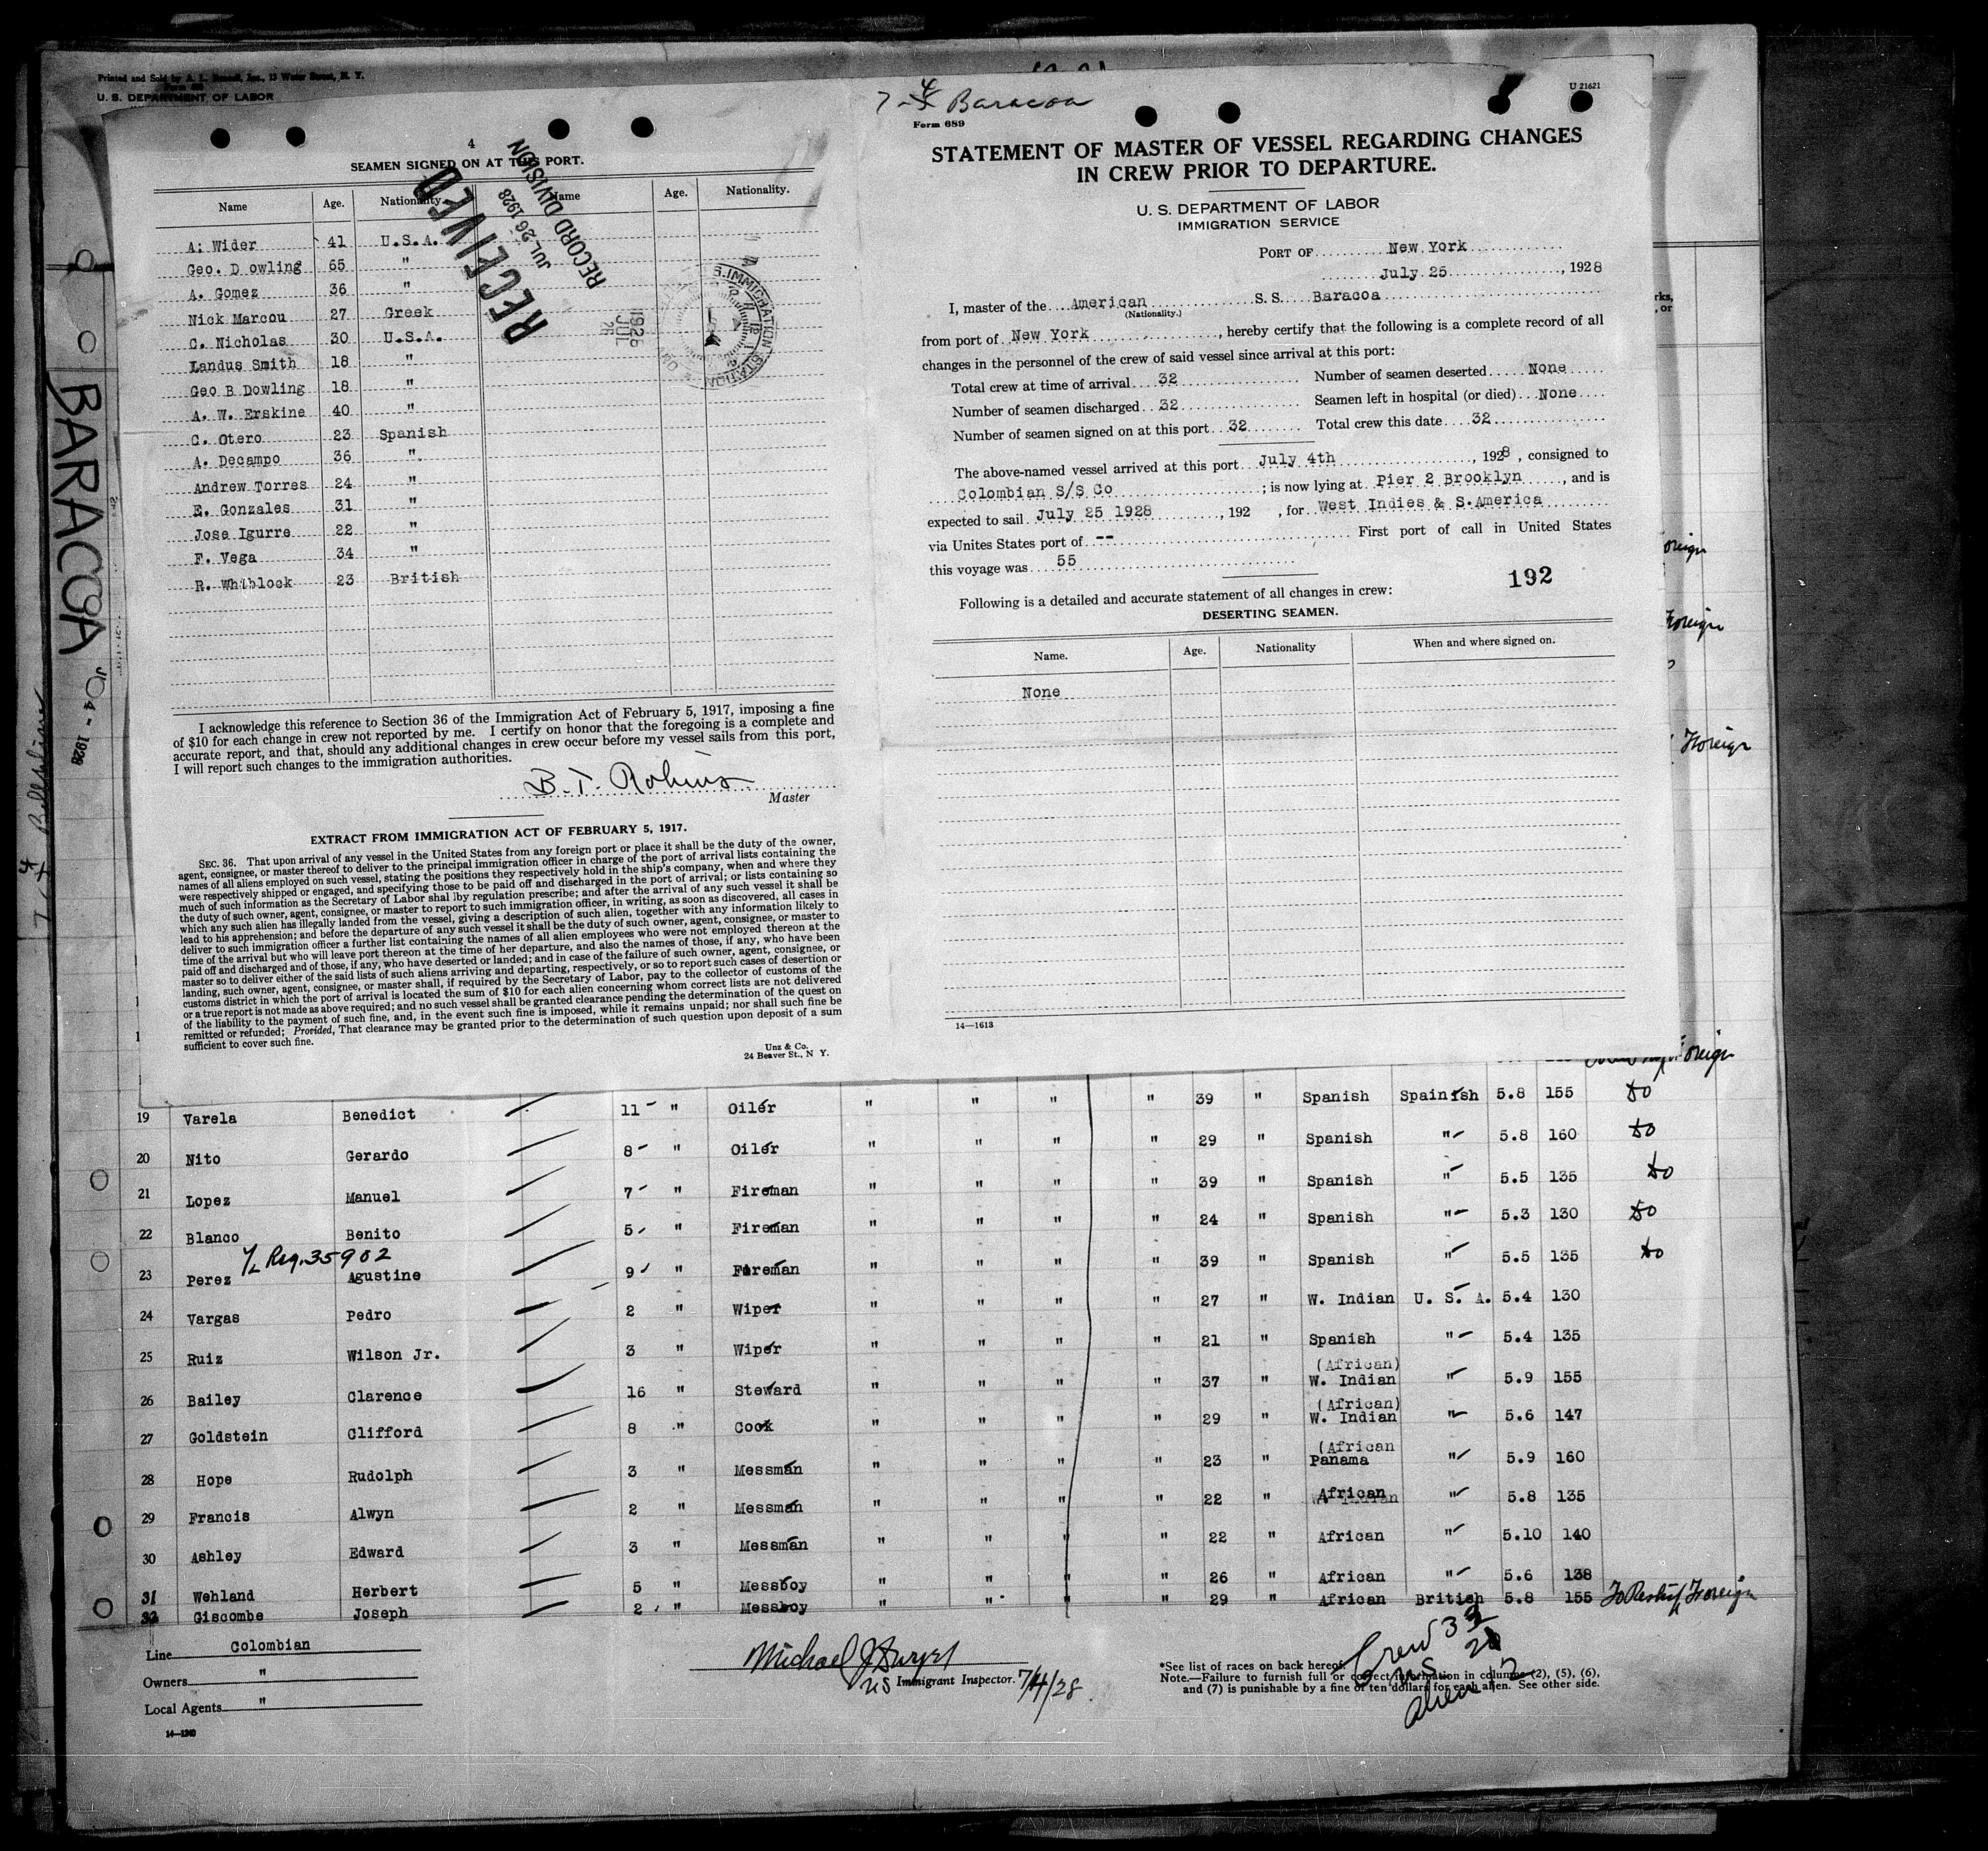 Printed and Sold by A. L. Russell, Inc., 13 Water Street, N. Y.
U. S. DEPARTMENT OF LABOR
BARACOA
4 - 1928
4
SEAMEN SIGNED ON AT THIS PORT.
Name Age. Nationality Name Age. Nationality.
A: Wider 41 U.S.A.
Geo. D owling 65 "
A. Gomez 36 "
Nick Marcou 27 Greek
C. Nicholas 30 U.S.A.
Landus Smith 18 "
Geo B Dowling 18 "
A. W. Erskine 40 "
C. Otero 23 Spanish
A. Decampo 36 "
Andrew Torres 24 "
E. Gonzales 31 "
Jose Igurre 22 "
F. Vega 34 "
R. Whiblock 23 British
RECEIVED
JUL 26 1928
RECORD DIVISION
1928
JUL
S. IMMIGRATION STATION
I acknowledge this reference to Section 36 of the Immigration Act of February 5, 1917, imposing a fine
of $10 for each change in crew not reported by me. I certify on honor that the foregoing is a complete and
accurate report, and that, should any additional changes in crew occur before my vessel sails from this port,
I will report such changes to the immigration authorities.
B. T. Robins
Master
EXTRACT FROM IMMIGRATION ACT OF FEBRUARY 5, 1917.
SEC. 36. That upon arrival of any vessel in the United States from any foreign port or place it shall be the duty of the owner,
agent, consignee, or master thereof to deliver to the principal immigration officer in charge of the port of arrival lists containing the
names of all aliens employed on such vessel, stating the positions they respectively hold in the ship's company, when and where they
were respectively shipped or engaged, and specifying those to be paid off and discharged in the port of arrival; or lists containing so
much of such information as the Secretary of Labor shal lby regulation prescribe; and after the arrival of any such vessel it shall be
the duty of such owner, agent, consignee, or master to report to such immigration officer, in writing, as soon as discovered, all cases in
which any such alien has illegally landed from the vessel, giving a description of such alien, together with any information likely to
lead to his apprehension; and before the departure of any such vessel it shall be the duty of such owner, agent, consignee, or master to
deliver to such immigration officer a further list containing the names of all alien employees who were not employed thereon at the
time of the arrival but who will leave port thereon at the time of her departure, and also the names of those, if any, who have been
paid off and discharged and of those, if any, who have deserted or landed; and in case of the failure of such owner, agent, consignee, or
master so to deliver either of the said lists of such aliens arriving and departing, respectively, or so to report such cases of desertion or
landing, such owner, agent, consignee, or master shall, if required by the Secretary of Labor, pay to the collector of customs of the
customs district in which the port of arrival is located the sum of $10 for each alien concerning whom correct lists are not delivered
or a true report is not made as above required; and no such vessel shall be granted clearance pending the determination of the quest on
of the liability to the payment of such fine, and, in the event such fine is imposed, while it remains unpaid; nor shall such fine be
remitted or refunded; Provided, That clearance may be granted prior to the determination of such question upon deposit of a sum
sufficient to cover such fine.
Unz & Co.
24 Beaver St., N Y.
7-4 Baracoa
Form 689
U 21621
STATEMENT OF MASTER OF VESSEL REGARDING CHANGES
IN CREW PRIOR TO DEPARTURE.
U. S. DEPARTMENT OF LABOR
IMMIGRATION SERVICE
PORT OF New York
July 25, 1928
I, master of the American S. S. Baracoa
(Nationality.)
from port of New York, hereby certify that the following is a complete record of all
changes in the personnel of the crew of said vessel since arrival at this port:
Total crew at time of arrival 32 Number of seamen deserted None
Number of seamen discharged 32 Seamen left in hospital (or died) None
Number of seamen signed on at this port 32 Total crew this date 32
The above-named vessel arrived at this port July 4th, 1928, consigned to
Colombian S/S Co; is now lying at Pier 2 Brooklyn, and is
expected to sail July 25 1928, 192 , for West Indies & S.America
via Unites States port of -- First port of call in United States
this voyage was 55
192
Following is a detailed and accurate statement of all changes in crew:
DESERTING SEAMEN.
Name. Age. Nationality When and where signed on.
None
14—1613
rks,
, or
oreign
Foreign
Foreign
oreign
19 Varela Benedict 11 " Oiler " " " " 39 " Spanish Spainish 5.8 155 do
20 Nito Gerardo 8 " Oiler " " " " 29 " Spanish " 5.8 160 do
21 Lopez Manuel 7 " Fireman " " " " 39 " Spanish " 5.5 135 do
22 Blanco Benito 5 " Fireman " " " " 24 " Spanish " 5.3 130 do
Reg. 35902
23 Perez Agustine 9 " Fireman " " " " 39 " Spanish " 5.5 135 do
24 Vargas Pedro 2 " Wiper " " " " 27 " W. Indian U. S. A. 5.4 130
25 Ruiz Wilson Jr. 3 " Wiper " " " " 21 " Spanish " 5.4 135
26 Bailey Clarence 16 " Steward " " " " 37 " (African) W. Indian " 5.9 155
27 Goldstein Clifford 8 " Cook " " " " 29 " (African) W. Indian " 5.6 147
28 Hope Rudolph 3 " Messman " " " " 23 " (African Panama " 5.9 160
29 Francis Alwyn 2 " Messman " " " " 22 " African " 5.8 135
30 Ashley Edward 3 " Messman " " " " 22 " African " 5.10 140
31 Wehland Herbert 5 " Messboy " " " " 26 " African " 5.6 138
32 Giscombe Joseph 2 " Messboy " " " " 29 " African British 5.8 155 To Reship Foreign
Line Colombian
Owners "
Local Agents "
14—1240
Michael J Dwyer
US Immigrant Inspector. 7/4/28.
*See list of races on back hereof.
Note.—Failure to furnish full or correct information in columns (2), (5), (6),
and (7) is punishable by a fine of ten dollars for each alien. See other side.
Crew 32
US 20
alien 12